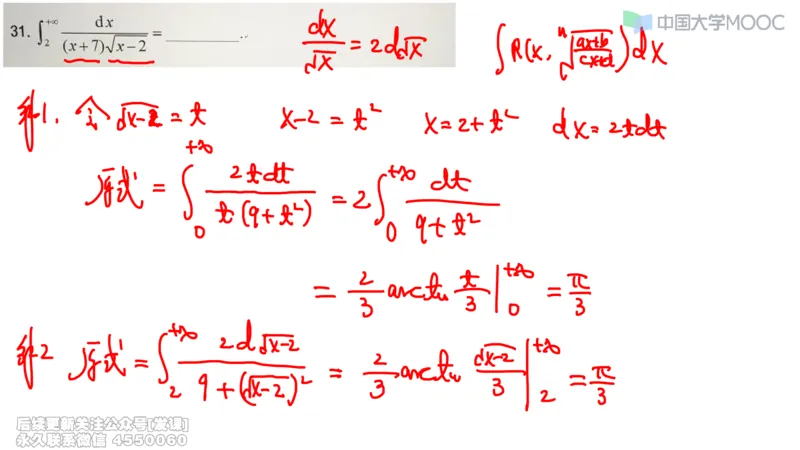 中国大学MOOC
31. ∫₂^{+∞} dx / ((x+7)√(x−2)) = ________.
dx/√x = 2d√x
∫R(x, ⁿ√((ax+b)/(cx+d)))dx
解1. 令 √(x−2) = t    x−2 = t²    x = 2+t²    dx = 2tdt
原式 = ∫₀^{+∞} 2tdt / (t(9+t²)) = 2∫₀^{+∞} dt / (9+t²)
= 2/3 arctan t/3 |₀^{+∞} = π/3
解2 原式 = ∫₂^{+∞} 2d√(x−2) / (9+(√(x−2))²) = 2/3 arctan √(x−2)/3 |₂^{+∞} = π/3
后续更新关注公众号[发课]
永久联系微信 4550060